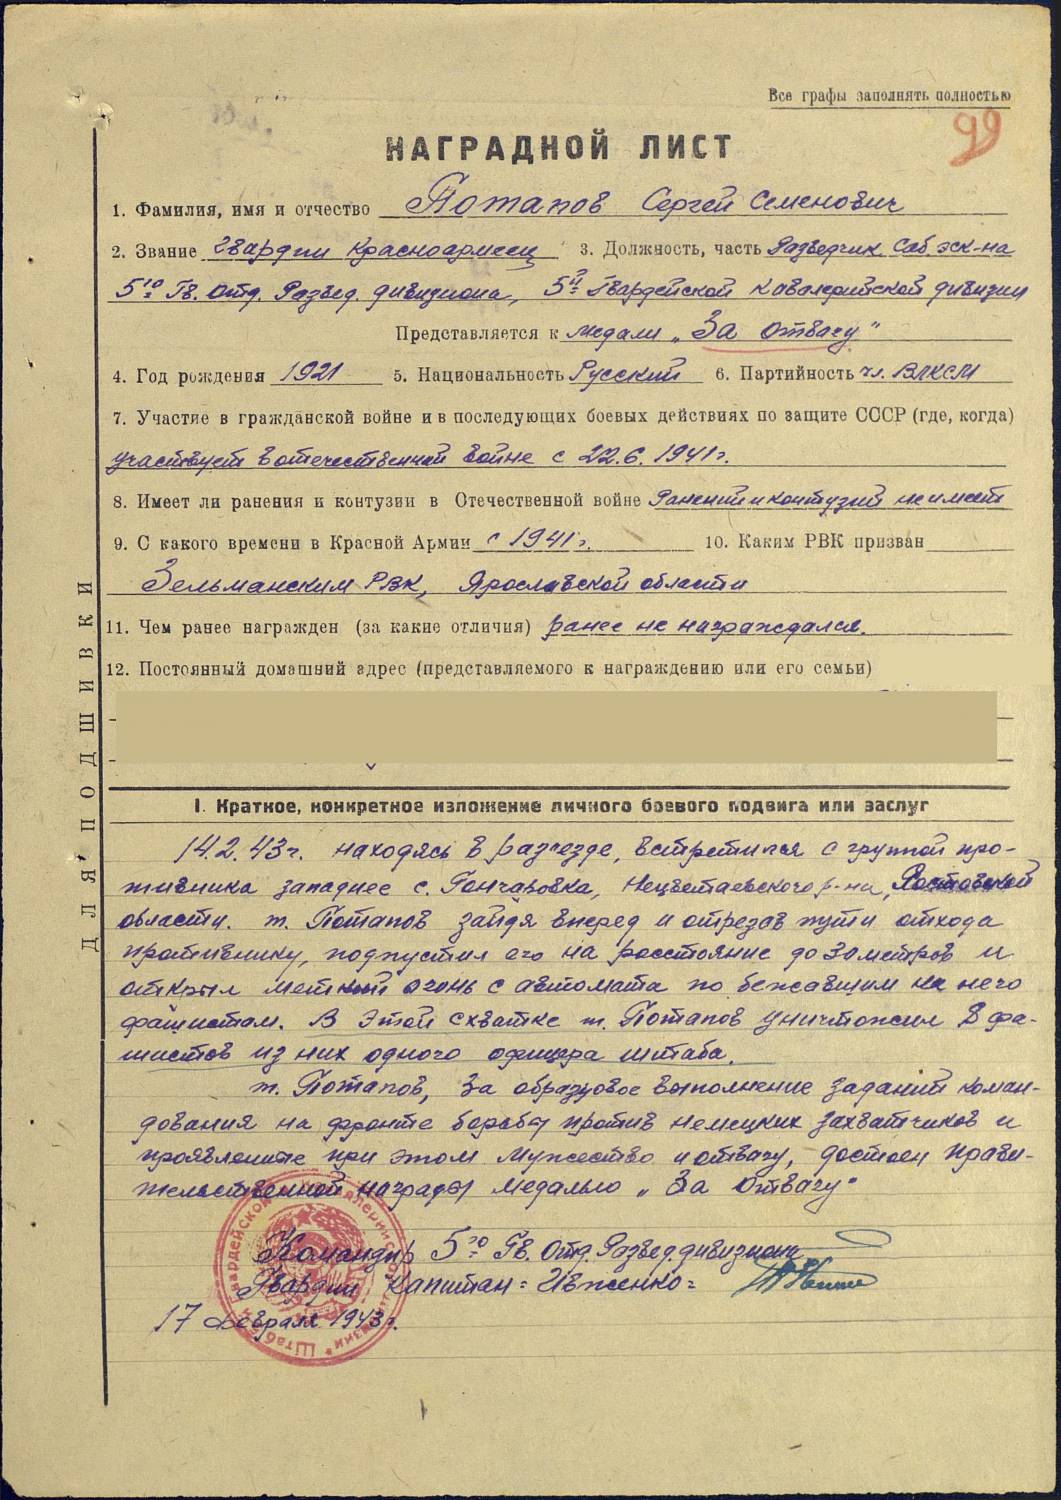 Все графы заполнять полностью
99
НАГРАДНОЙ ЛИСТ
1. Фамилия, имя и отчество Потапов Сергей Семенович
2. Звание Гвардии Красноармеец 3. Должность, часть Разведчик Саб. эск-на
5го Гв. Отд. Развед. дивизиона, 5й Гвардейской кавалерийской дивизии
Представляется к медали „За отвагу"
4. Год рождения 1921 5. Национальность Русский 6. Партийность чл. ВЛКСМ
7. Участие в гражданской войне и в последующих боевых действиях по защите СССР (где, когда)
участвует в отечественной войне с 22.6.1941г.
8. Имеет ли ранения и контузии в Отечественной войне Ранений и контузий не имеет
9. С какого времени в Красной Армии с 1941г. 10. Каким РВК призван
Зельманским РВК, Ярославской области
11. Чем ранее награжден (за какие отличия) ранее не награждался.
12. Постоянный домашний адрес (представляемого к награждению или его семьи)
ДЛЯ ПОДШИВКИ
I. Краткое, конкретное изложение личного боевого подвига или заслуг
14.2.43г. находясь в разъезде, встретился с группой про-
тивника западнее с. Гончаровка, Нецветаевского р-на, Ростовской
области. т. Потапов зайдя вперед и отрезав пути отхода
противнику, подпустил его на росстояние до 30 метров и
открыл меткий огонь с автомата по бежавщим на него
фашистам. В этой схватке т. Потапов уничтожил 8 фа-
шистов из них одного офицера штаба.
т. Потапов, за образцовое выполнение заданий коман-
дования на фронте борьбы против немецких захватчиков и
проявленные при этом мужество и отвагу, достоен прави-
тельственной награды медалью „За отвагу"
Командир 5го Гв. Отд. Развед. дивизиона
Гвардии Капитан = Ивженко =
17 февраля 1943г.